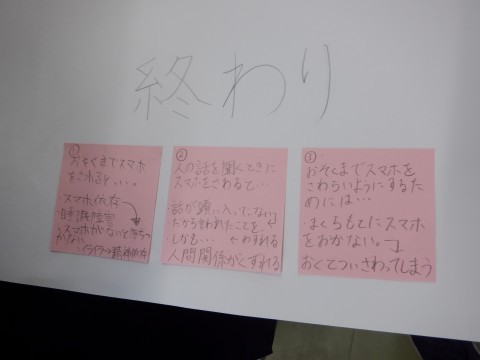 終わり
①
おそくまでスマホ
をさわると、、。
・スマホ依存
・睡眠障害
・スマホがないと落ちつ
かない
・イライラ→精神的な
②
人の話を聞くときに
スマホをさわると…
話が頭に入ってこない
だから言われたことを
しかも… ←わすれる
人間関係がくずれる
③
おそくまでスマホを
さわらいようにするた
めには…
・まくらもとにスマホ
をおかない。
おくとついさわってしまう